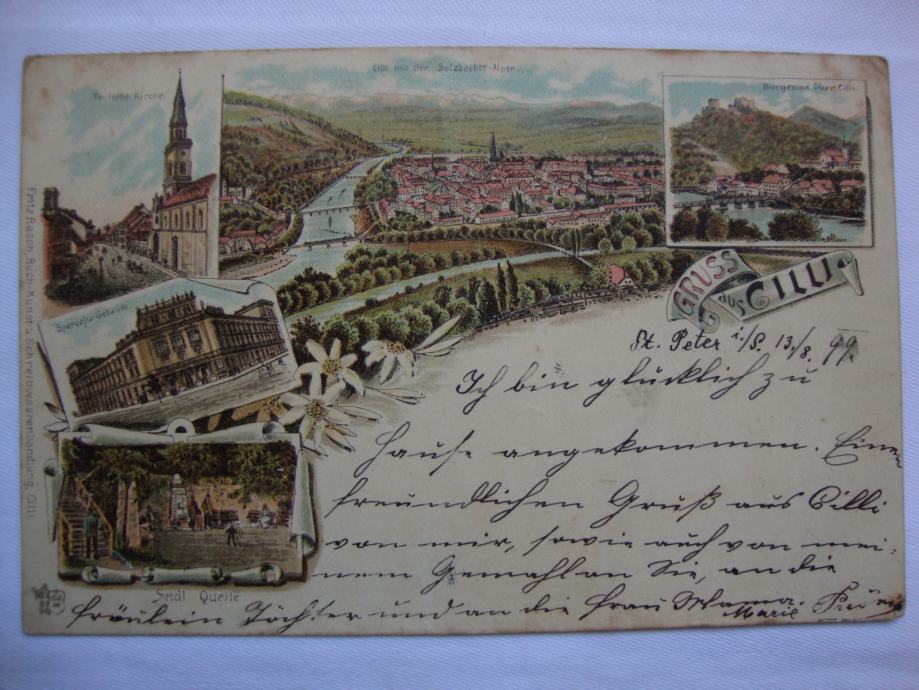 Cilli mit den Sulzbacher-Alpen.
Deutsche Kirche
Burgruine Ober Cilli.
GRUSS
aus CILLI
Sparcasse-Gebäude
Seidl Quelle
Fritz Rasch Buch-, Kunst- u. Schreibwaarenhandlung, Cilli
St. Peter i/S. 13/8. 99.
Ich bin glücklich zu
Hause angekommen. Einen
freundlichen Gruß aus Cilli
von mir, sowie auch von mei-
nem Gemahl an Sie, an die
fräulein Töchter und an die frau Mama.
Marie